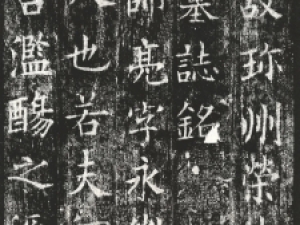 故珎州榮
墓誌銘
師亮字永
也若夫
濫觴之